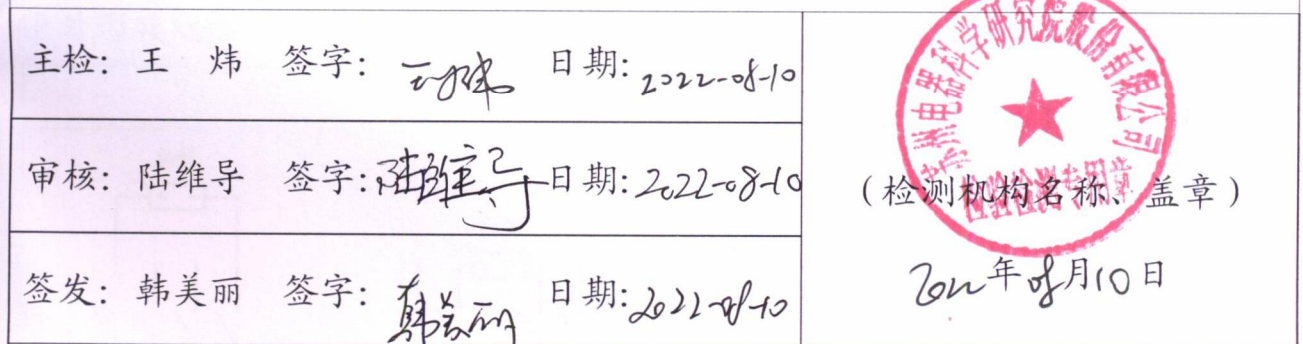 主检：王　炜　签字：王炜　日期：2022-08-10
审核：陆维导　签字：陆维导　日期：2022-08-10
签发：韩美丽　签字：韩美丽　日期：2022-08-10
苏州电器科学研究院股份有限公司
检验检测专用章
（检测机构名称、盖章）
2022年08月10日